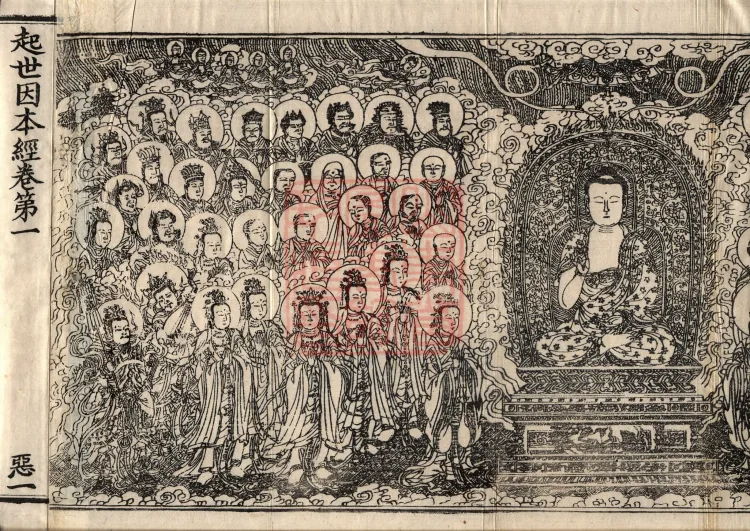 起世因本經卷第一
惡一